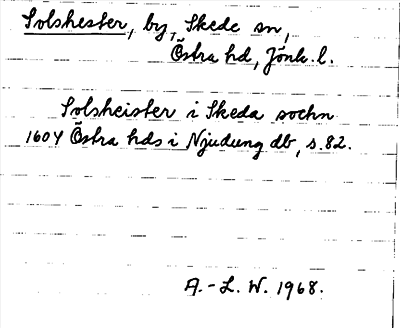 Solshester, by, Skede sn,
Östra hd, Jönk. l.
Solsheister i Skeda sochn
1604 Östra hds i Njudung db, s. 82.
A.-L. W. 1968.